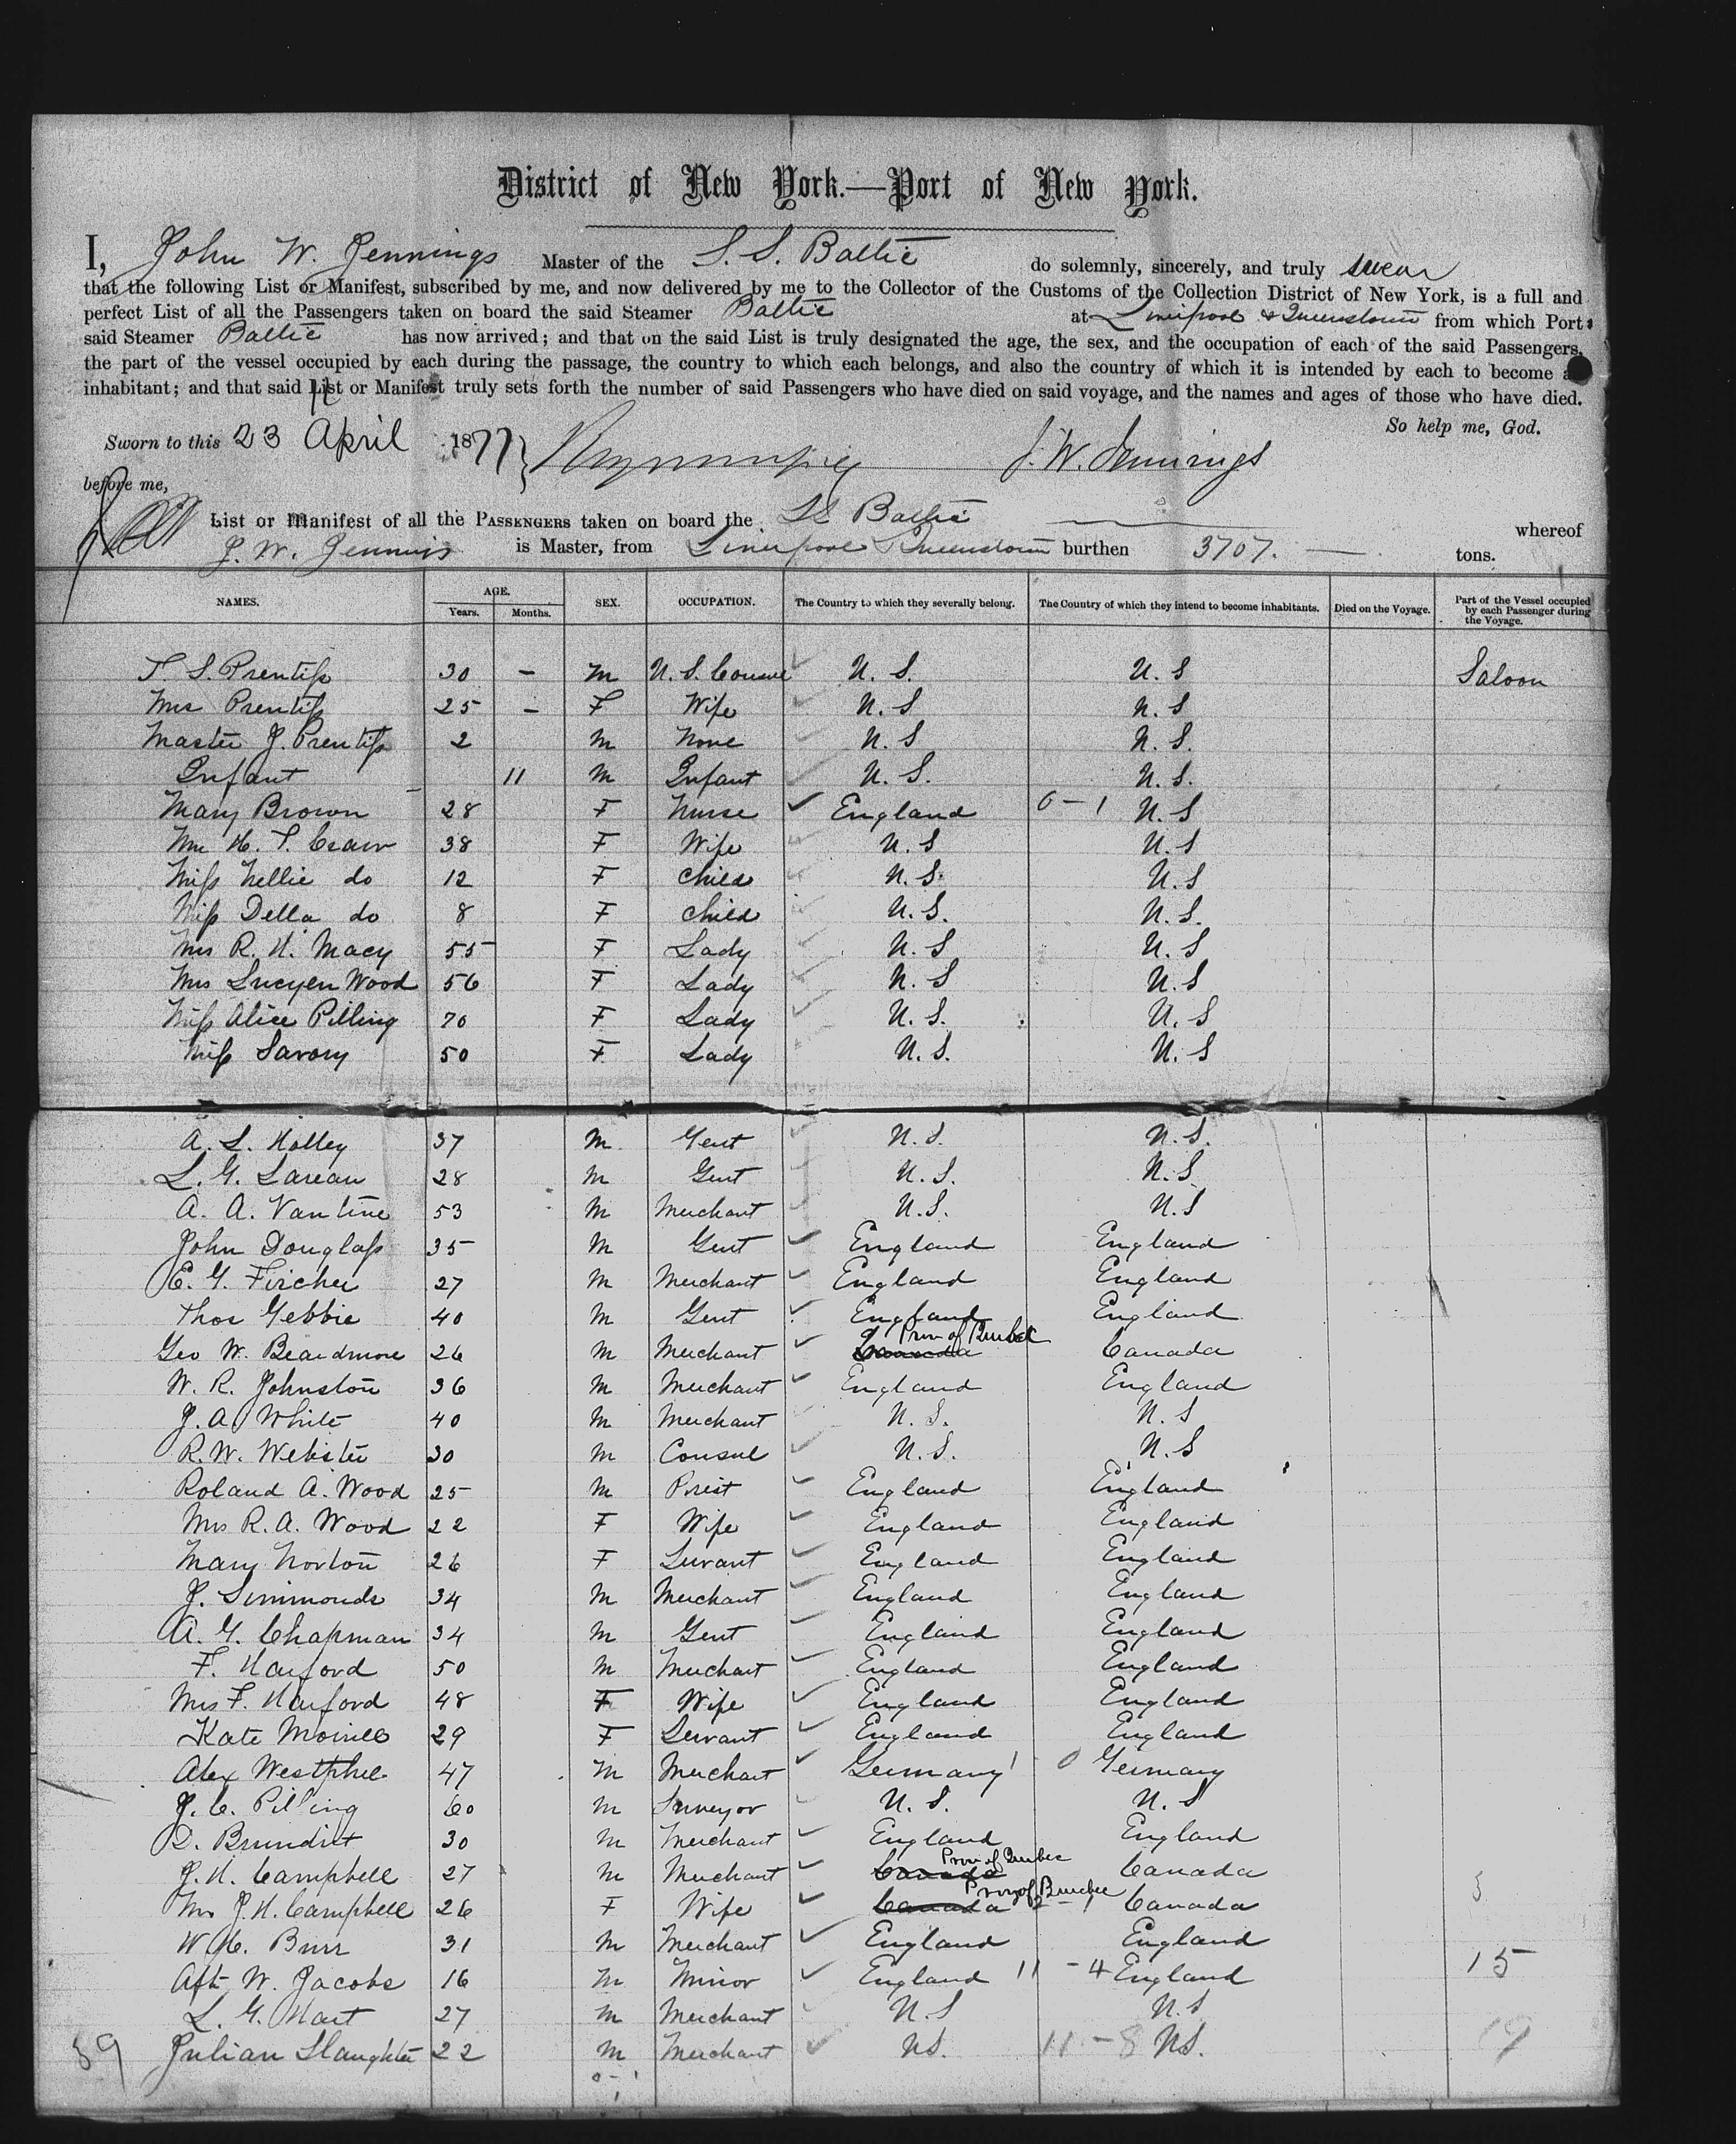 District of New York.—Port of New York.
I, John W. Jennings Master of the S. S. Baltic do solemnly, sincerely, and truly swear
that the following List or Manifest, subscribed by me, and now delivered by me to the Collector of the Customs of the Collection District of New York, is a full and
perfect List of all the Passengers taken on board the said Steamer Baltic at Liverpool & Queenstown from which Port
said Steamer Baltic has now arrived; and that on the said List is truly designated the age, the sex, and the occupation of each of the said Passengers,
the part of the vessel occupied by each during the passage, the country to which each belongs, and also the country of which it is intended by each to become a
inhabitant; and that said List or Manifest truly sets forth the number of said Passengers who have died on said voyage, and the names and ages of those who have died.
So help me, God.
Sworn to this 23 April 1877 J. W. Jennings
before me,
List or Manifest of all the PASSENGERS taken on board the SS Baltic whereof
J. W. Jennings is Master, from Liverpool & Queenstown burthen 3707. tons.
NAMES. AGE. Years. Months. SEX. OCCUPATION. The Country to which they severally belong. The Country of which they intend to become inhabitants. Died on the Voyage. Part of the Vessel occupied by each Passenger during the Voyage.
T. S. Prentiss 30 – M U. S. Consul U. S. U. S Saloon
Mrs Prentiss 25 – F Wife U. S U. S
Master J. Prentiss 2 M None U. S U. S.
Infant 11 M Infant U. S. U. S.
Mary Brown 28 F Nurse England 0 – 1 U. S
H. T. 38 F Wife U. S U. S
Miss Nellie do 12 F Child U. S. U. S
Miss Della do 8 F Child U. S. U. S.
Mrs R. H. Macy 55 F Lady U. S U. S
Mrs Wood 56 F Lady U. S U. S
Miss Alice Pilling 70 F Lady U. S. U. S
Miss Savory 50 F Lady U. S. U. S
A. L. Holley 37 M Gent U. S. U. S.
L. G. Lareau 28 M Gent U. S. U. S.
A. A. Vantine 53 M Merchant U. S. U. S
John Douglass 35 M Gent England England
E. G. Fircher 27 M Merchant England England
Thos Gebbie 40 M Gent England England
Geo W. Beardmore 26 M Merchant Canada Prov of Quebec Canada
W. R. Johnston 36 M Merchant England England
J. A. White 40 M Merchant U. S. U. S
R. W. Webster 30 M Consul U. S. U. S
Roland A. Wood 25 M Priest England England
Mrs R. A. Wood 22 F Wife England England
Mary Norton 26 F Servant England England
J. Simmonds 34 M Merchant England England
A. G. Chapman 34 M Gent England England
F. Harford 50 M Merchant England England
Mrs F. Harford 48 F Wife England England
Kate 29 F Servant England England
Alex 47 M Merchant Germany 1 0 Germany
J. C. Pilling 60 M Surveyor U. S. U. S
30 M Merchant England England
J. H. Campbell 27 M Merchant Canada Prov of Quebec Canada
Mrs J. H. Campbell 26 F Wife Canada Prov of Quebec 2 – 1 Canada 3
Burr 31 M Merchant England England
W. Jacobs 16 M Minor England 11 – 4 England 15
L. G. Hart 27 M Merchant U. S U. S
59 Julian Slaughter 22 M Merchant U.S. 11 – 8 U.S. 19
0 – 1